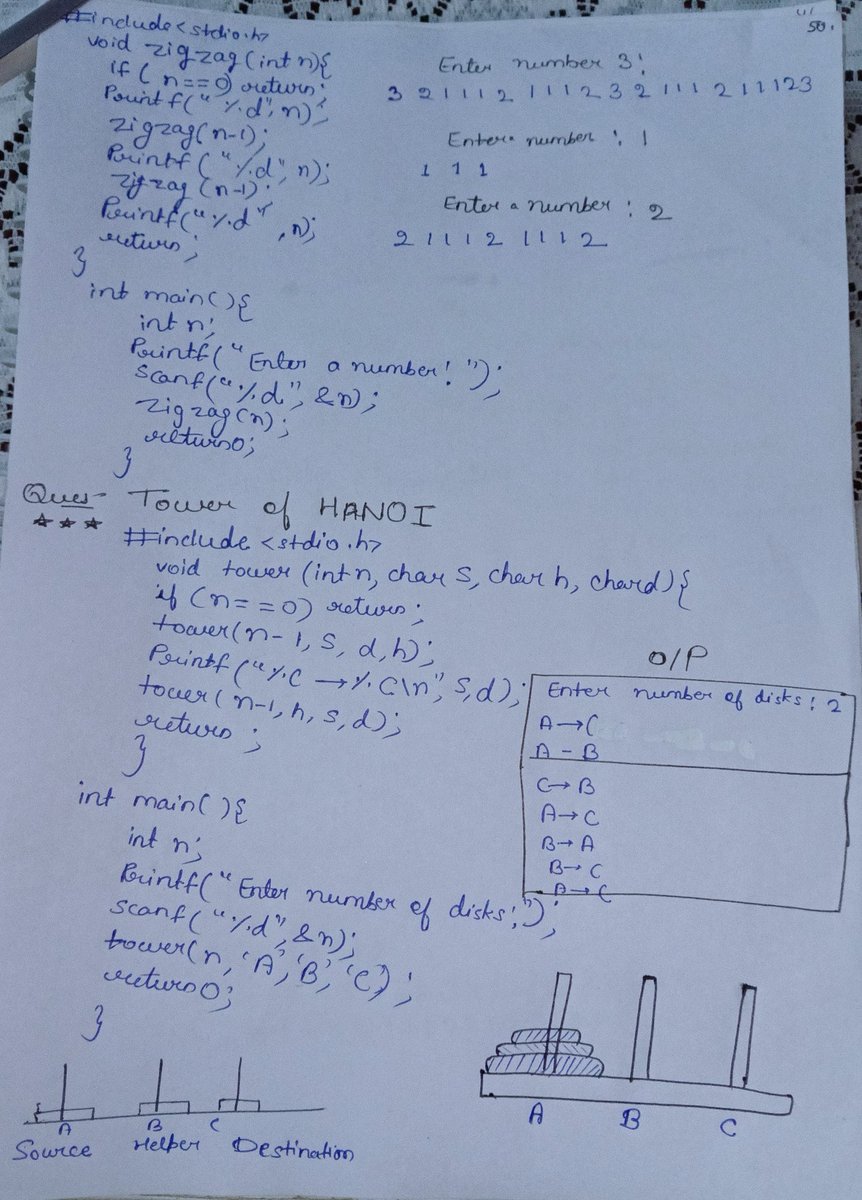 50.
#include<stdio.h>
void zigzag(int n){
if(n==0) return;
Printf("%d",n);
zigzag(n-1);
Printf("%d",n);
zigzag(n-1);
Printf("%d",n);
return;
}
Enter number 3:
3 2 1 1 1 2 1 1 1 2 3 2 1 1 1 2 1 1 1 2 3
Enter number : 1
1 1 1
Enter a number : 2
2 1 1 1 2 1 1 1 2
int main(){
int n;
Printf("Enter a number! ");
Scanf("%d", &n);
zigzag(n);
return0;
}
Ques- Tower of HANOI
#include<stdio.h>
void tower (int n, char S, char h, char d){
if (n==0) return;
tower(n-1, S, d, h);
Printf("%C → %C\n", S,d);
tower(n-1, h, s, d);
return;
}
O/P
Enter number of disks: 2
A→C
A-B
C→B
A→C
B→A
B→C
A→C
int main(){
int n;
Printf("Enter number of disks:");
Scanf("%d", &n);
tower(n, 'A', 'B', 'C');
return0;
}
A B C
Source Helper Destination
A B C